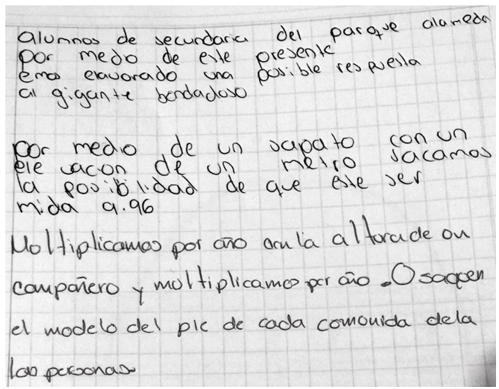 alumnos de secundaria del parque alameda
por medio de este presente
emos elavorado una posible respuesta
al gigante bondadoso
por medio de un sapato con un
ele vacon de un metro sacamos
la posibilidad de que este ser
mida 9.96
Moltiplicamos por año con la altorade on
compañero y moltiplicamos por año. O saquen
el modelo del pie de cada comounida dela
las personas